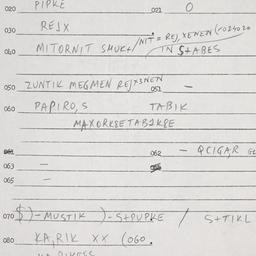 020 PIPKE 021 O
030 REJX
040 MITORNIT SMUK+/NIT = REJ, XENEN (
IN S+ABES
050 ZUNTIK MEGMEN REJXENEN 051 —
060 PAPIRO, S TABIK
MAXORKEETABIKEE
061 062 — QCIGAR
063 —
065 —
070 $)-MUSTIK )-S+PUPKE / S+TIKL
080 KA, RIK XX (060.